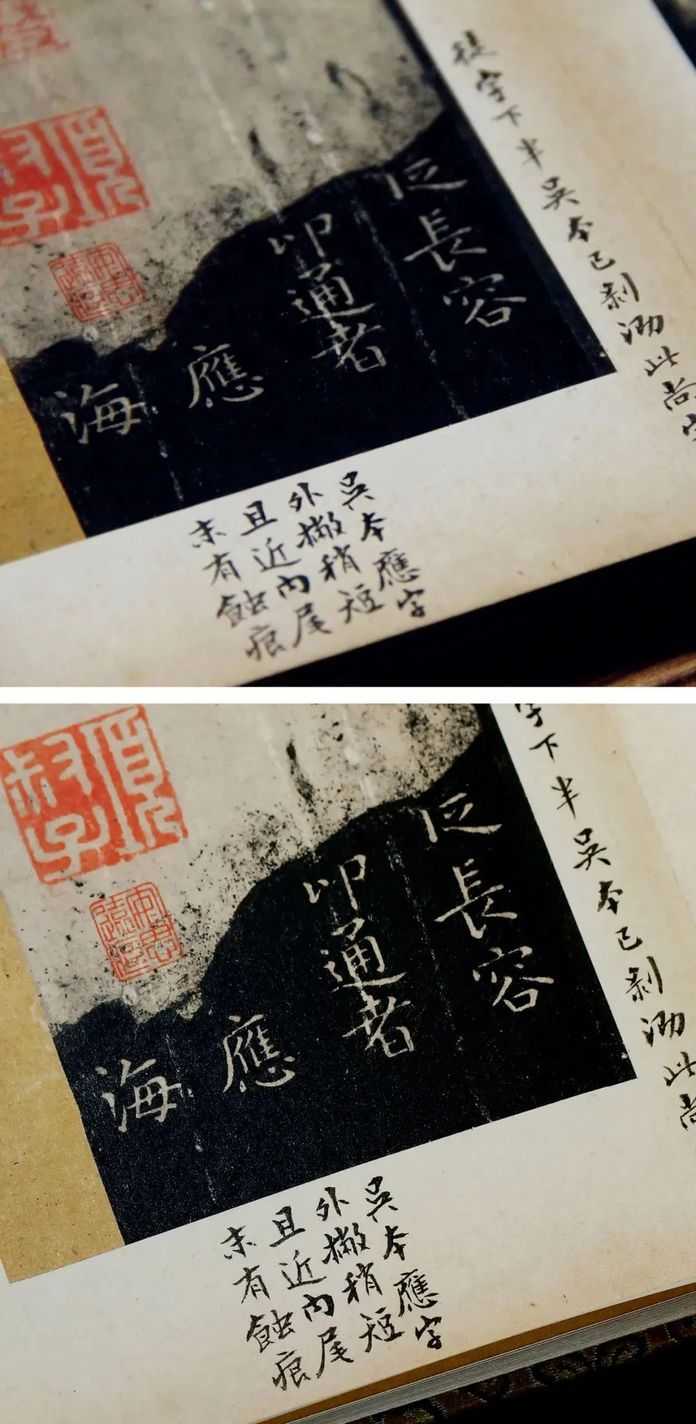 字下半吳本已剝泐此尚
長容
印通者
應
海
項叔子
吳本應字
外撇稍短
且近內尾
末有蝕痕
字下半吳本已剝泐此尚
長容
印通者
應
海
項叔子
吳本應字
外撇稍短
且近內尾
末有蝕痕